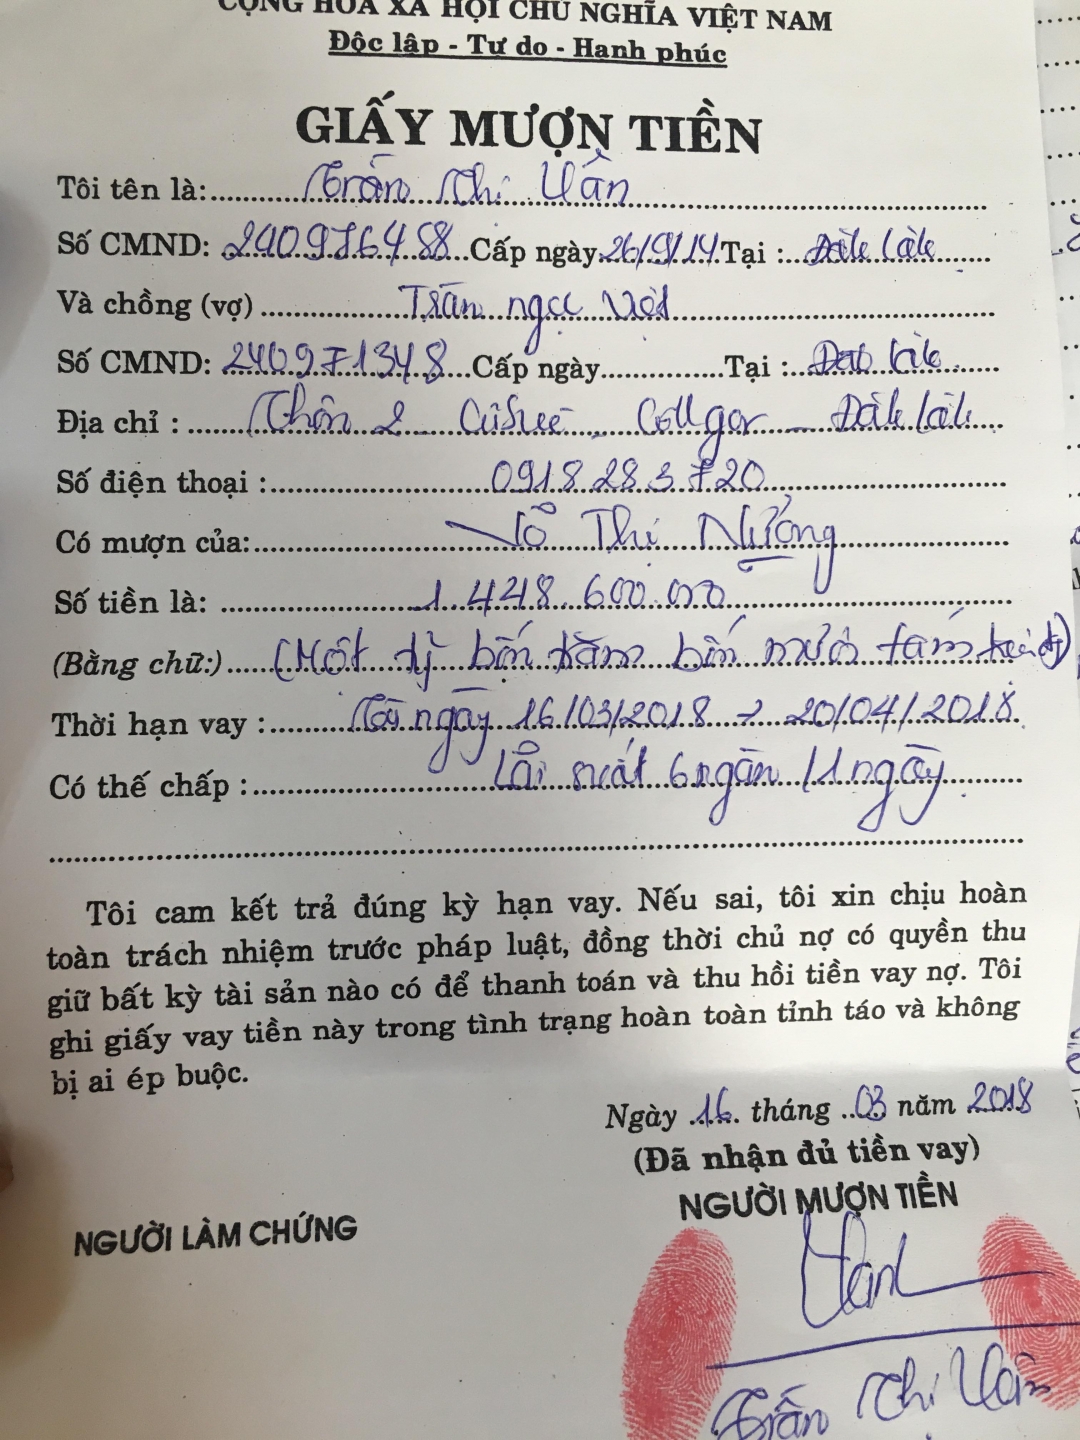 CỘNG HÒA XÃ HỘI CHỦ NGHĨA VIỆT NAM
Độc lập - Tự do - Hạnh phúc
GIẤY MƯỢN TIỀN
Tôi tên là: Trần Thị Vân
Số CMND: 240976458 Cấp ngày 26/9/14 Tại : Đăk Lăk
Và chồng (vợ) Trần ngọc
Số CMND: 240971348 Cấp ngày Tại : Đăk Lăk
Địa chỉ : Thôn 2 - Cưsuê - - Đăk Lăk
Số điện thoại : 0918 283 720
Có mượn của: Võ Thị Nương
Số tiền là: 1.448.600.000
(Bằng chữ:) (Một tỷ bốn trăm bốn mươi tám
Thời hạn vay : Từ ngày 16/03/2018 → 20/04/2018
Có thế chấp : Lãi suất 6 ngàn / 1 ngày
Tôi cam kết trả đúng kỳ hạn vay. Nếu sai, tôi xin chịu hoàn
toàn trách nhiệm trước pháp luật, đồng thời chủ nợ có quyền thu
giữ bất kỳ tài sản nào có để thanh toán và thu hồi tiền vay nợ. Tôi
ghi giấy vay tiền này trong tình trạng hoàn toàn tỉnh táo và không
bị ai ép buộc.
Ngày 16 tháng 03 năm 2018
(Đã nhận đủ tiền vay)
NGƯỜI MƯỢN TIỀN
NGƯỜI LÀM CHỨNG
Vân
Trần Thị Vân